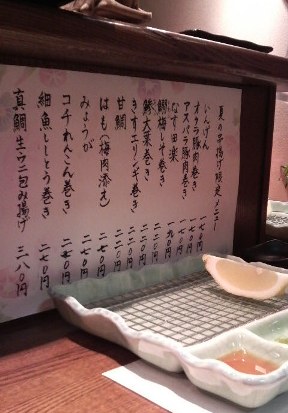 夏の串揚げ現定メニュー
いんげん 一七〇円
オクラ豚肉巻き 一七〇円
アスパラ豚肉巻き 一七〇円
なす田楽 一九〇円
鰯梅しそ巻き 二二〇円
鯵大葉巻き 二二〇円
きすエリンギ巻き 二二〇円
甘鯛 二二〇円
はも(梅肉添え) 二七〇円
みょうが
コチれんこん巻き 二七〇円
細魚ししとう巻き 二七〇円
真鯛生ウニ包み揚げ 三八〇円